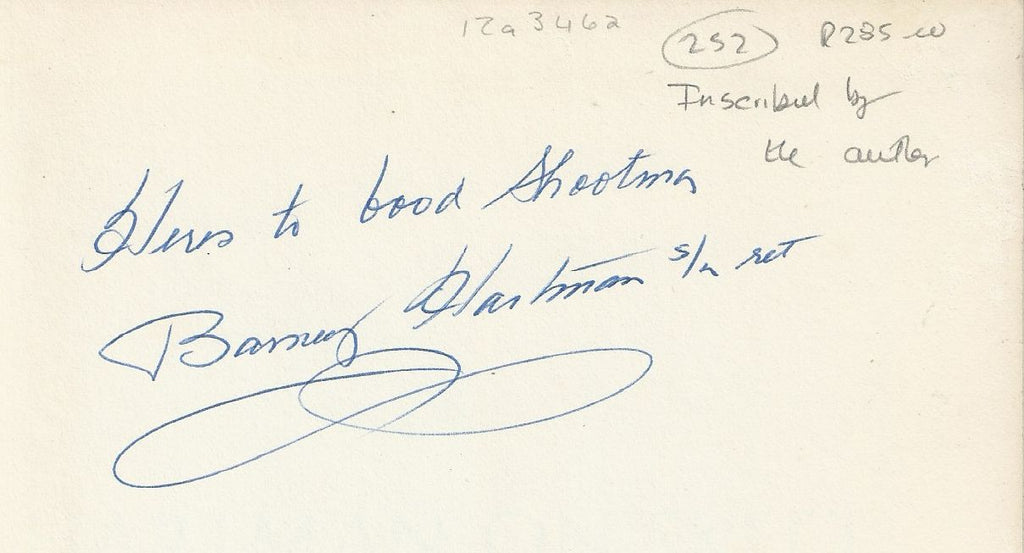 12a3462
252 R285 w
Inscribed by
the author
Heres to Good Shooting
Barney Hartman s/l ret